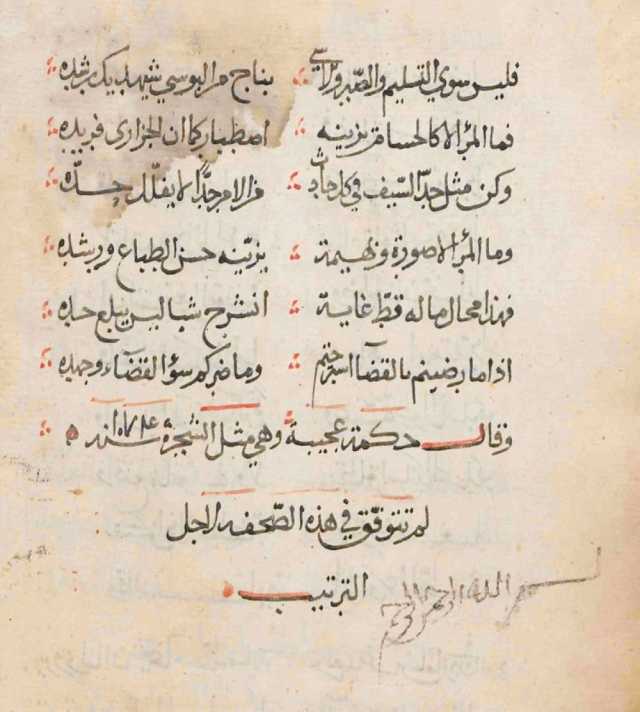 فليس سوي التسليم والصبر والرا سي بناج من البوسي شهيد يك رشده
فما المرؤ الا كالحسام تزينه اصطبار كما ان الجزارى فريده
وكن مثل حد السيف في كل حادث من الامر جدّا لا يفلّل حدّه
وما المرؤ الا صورة وبهيمة يزيّنه حسن الطباع ورشده
فهذا محال ماله قطّ غاية انشرح شبا ليس يبلغ حده
اذا ما رضيتم بالقضآ استرحتم وما ضركم سؤ القضآء وجهده
وقال حكمة عجيبة وهي مثل الشجرة سند
لم تتوقّق في هذه الصّحفه لاجل
الترتيب
بسم الله الرحمن الرحيم